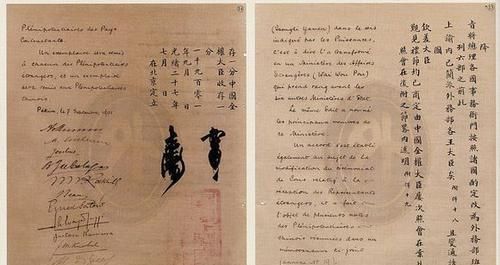 Plénipotentiaires des Pays
Contractants.
Un exemplaire sera remis
à chacun des Plénipotentiaires
étrangers, et un exemplaire
sera remis aux Plénipotentiaires
Chinois.
Pékin, le 7 Septembre 1901
存一分中國全
權大臣收存一
分
一千九百零一
年九月
光緒二十七年
七月 日
在北京定立
(Tsungli Yamen) dans le sens
indiqué par les Puissances,
c'est à dire l'a transformé
en un Ministère des Affaires
Etrangères (Wai Wou Pou)
qui prend rang avant les
six autres Ministères d'Etat.
Le même Edit a nommé
les principaux membres de
ce Ministère.
Un accord s'est établi
également au sujet de la
modification du cérémonial
de Cour relatif à la ré-
ception des Représentants
étrangers, et a fait
l'objet de plusieurs notes
des Plénipotentiaires
Chinois résumées dans un
mémorandum ci-joint
(annexe Nº 19).
降
旨將總理各國事務衙門按照諸國酌定改為外務部班
列六部之前此
上諭內已簡派外務部各王大臣矣附件十八且變通諸
國
欽差大臣
覲見禮節均已商定由中國全權大臣屢次照會在案此
照會在後附之節略內述明附件十九